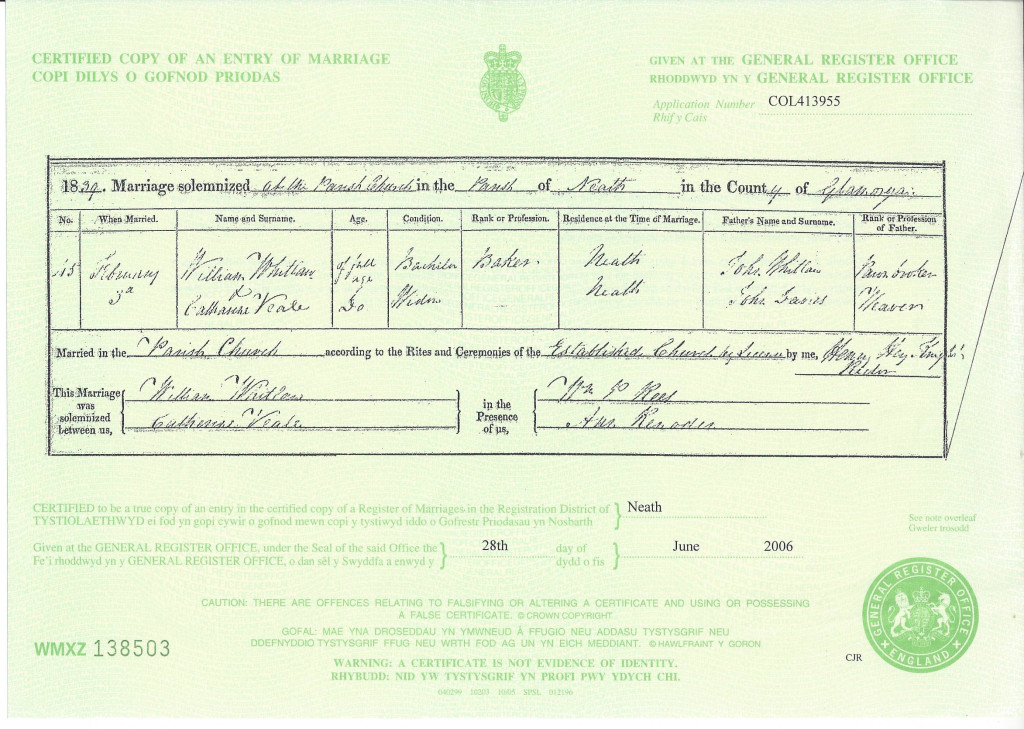 CERTIFIED COPY OF AN ENTRY OF MARRIAGE
COPI DILYS O GOFNOD PRIODAS
GIVEN AT THE GENERAL REGISTER OFFICE
RHODDWYD YN Y GENERAL REGISTER OFFICE
Application Number COL413955
Rhif y Cais
1839. Marriage solemnized at the Parish Church in the Parish of Neath in the County of Glamorgan
No. When Married. Name and Surname. Age. Condition. Rank or Profession. Residence at the Time of Marriage. Father's Name and Surname. Rank or Profession of Father.
February William Whitlow of full age Bachelor Baker Neath John Whitlow Pawnbroker
3d & Catharine Veale Do Widow Neath John Davies Weaver
Married in the Parish Church according to the Rites and Ceremonies of the Established Church by Licence by me, Henry Hey
This Marriage was solemnized between us, William Whitlow in the Presence of us, Wm P Rees
Catherine Veale Ann
CERTIFIED to be a true copy of an entry in the certified copy of a Register of Marriages in the Registration District of Neath
TYSTIOLAETHWYD ei fod yn gopi cywir o gofnod mewn copi y tystiwyd iddo o Gofrestr Priodasau yn Nosbarth
See note overleaf
Gweler trosodd
Given at the GENERAL REGISTER OFFICE, under the Seal of the said Office the 28th day of June 2006
Fe'i rhoddwyd yn y GENERAL REGISTER OFFICE, o dan sêl y Swyddfa a enwyd y dydd o fis
CAUTION: THERE ARE OFFENCES RELATING TO FALSIFYING OR ALTERING A CERTIFICATE AND USING OR POSSESSING
A FALSE CERTIFICATE. © CROWN COPYRIGHT
GOFAL: MAE YNA DROSEDDAU YN YMWNEUD Â FFUGIO NEU ADDASU TYSTYSGRIF NEU
DDEFNYDDIO TYSTYSGRIF FFUG NEU WRTH FOD AG UN YN EICH MEDDIANT. © HAWLFRAINT Y GORON
WARNING: A CERTIFICATE IS NOT EVIDENCE OF IDENTITY.
RHYBUDD: NID YW TYSTYSGRIF YN PROFI PWY YDYCH CHI.
WMXZ 138503
CJR
GENERAL REGISTER OFFICE
ENGLAND